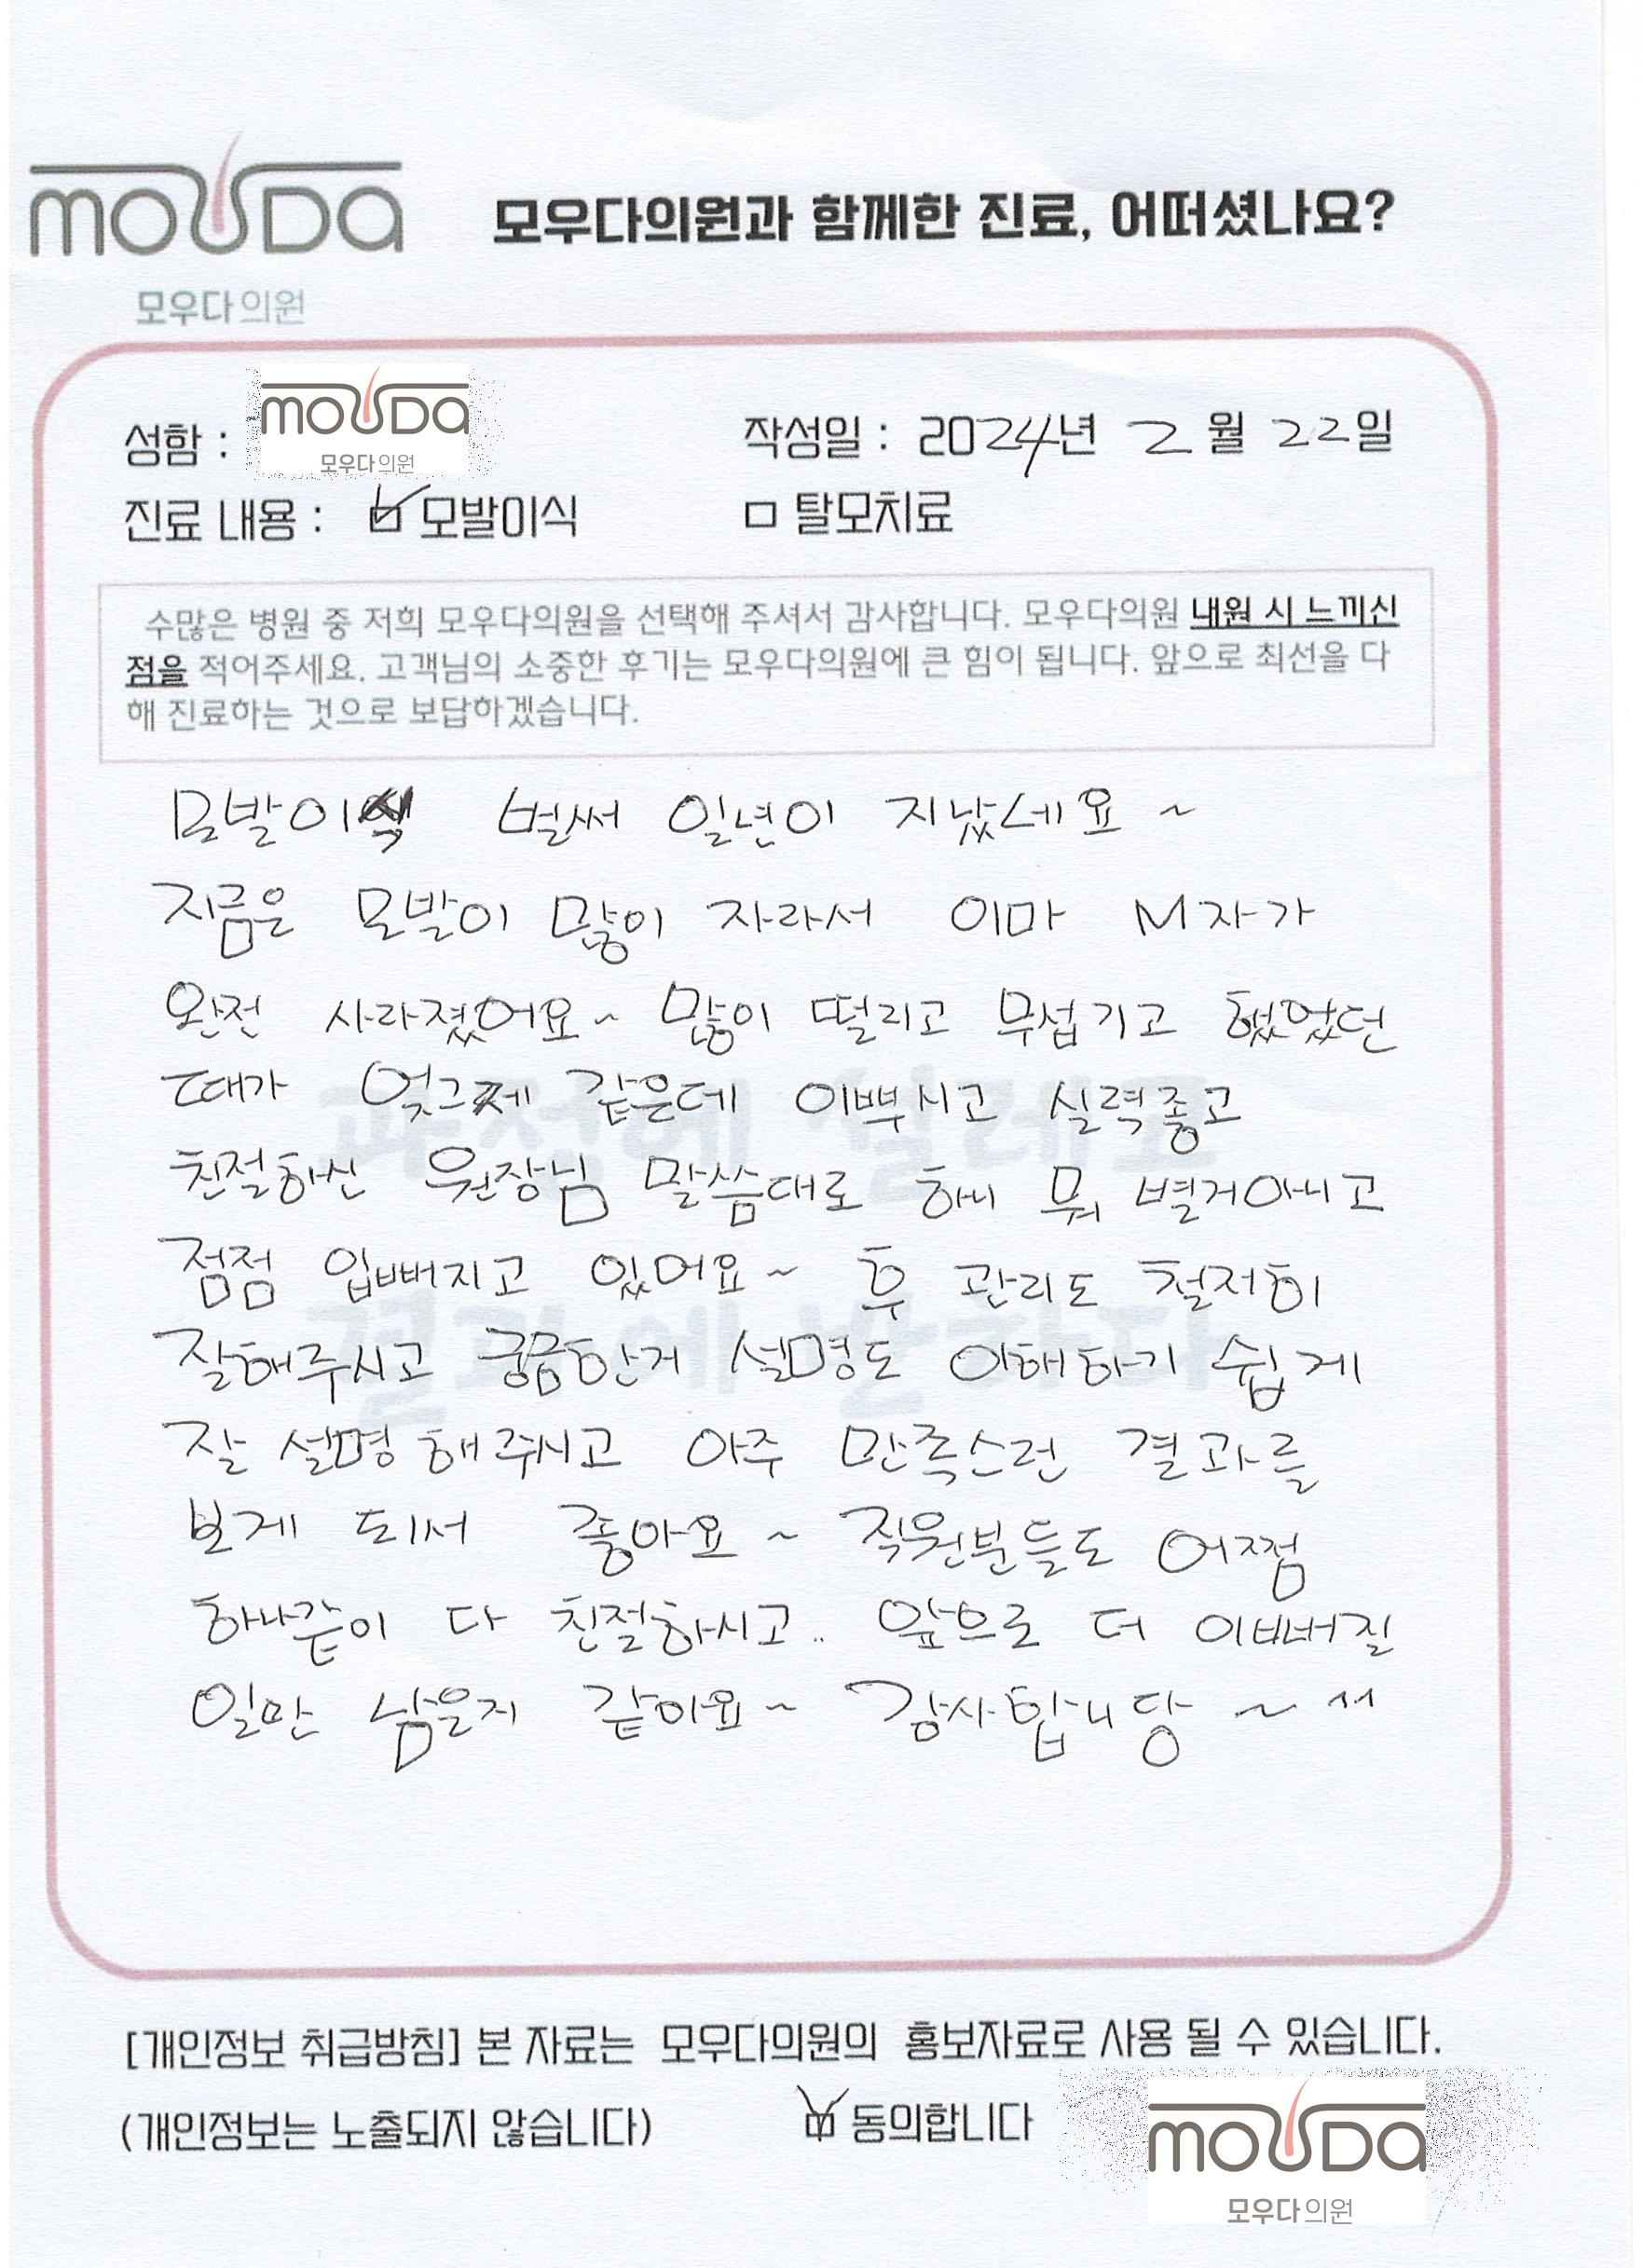 mouda
모우다의원
모우다의원과 함께한 진료, 어떠셨나요?
성함 : mouda
모우다의원
작성일 : 2024년 2월 22일
진료 내용 : ☑ 모발이식 ☐ 탈모치료
수많은 병원 중 저희 모우다의원을 선택해 주셔서 감사합니다. 모우다의원 내원 시 느끼신
점을 적어주세요. 고객님의 소중한 후기는 모우다의원에 큰 힘이 됩니다. 앞으로 최선을 다
해 진료하는 것으로 보답하겠습니다.
모발이식 벌써 일년이 지났네요 ~
지금은 모발이 많이 자라서 이마 M자가
완전 사라졌어요~ 많이 떨리고 무섭기고 했었던
때가 엊그제 같은데 이뿌시고 실력좋고
친절하신 원장님 말씀대로 하니 뭐 별거아니고
점점 입뻐지고 있어요~ 후 관리도 철저히
잘해주시고 궁금한거 설명도 이해하기 쉽게
잘 설명해주시고 아주 만족스런 결과를
보게 되서 좋아요~ 직원분들도 어쩜
하나같이 다 친절하시고.. 앞으로 더 이뻐질
일만 남은지 같아요~ 감사합니당~
과정에 설레고
결과에 반하다
[개인정보 취급방침] 본 자료는 모우다의원의 홍보자료로 사용 될 수 있습니다.
(개인정보는 노출되지 않습니다) ☑ 동의합니다
mouda
모우다의원